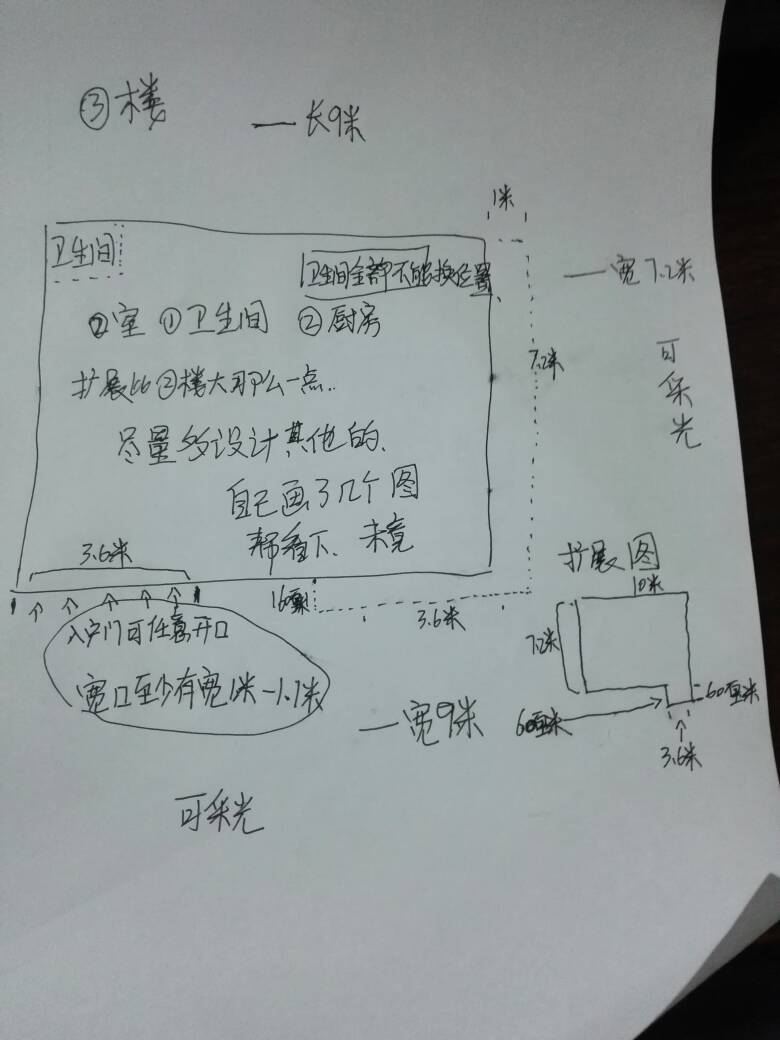 ③楼
— 长9米
1米
卫生间
卫生间全部不能换位置
— 宽7.2米
②室 ①卫生间 ②厨房
7.2米
可采光
扩展比②楼大那么一点..
尽量多设计其他的、
自己画了几个图
帮看下、未竟
3.6米
扩展图
10米
7.2米
60厘米
3.6米
入户门可任意开口
宽口至少有宽1米-1.1米
— 宽9米
60厘米
60厘米
3.6米
可采光